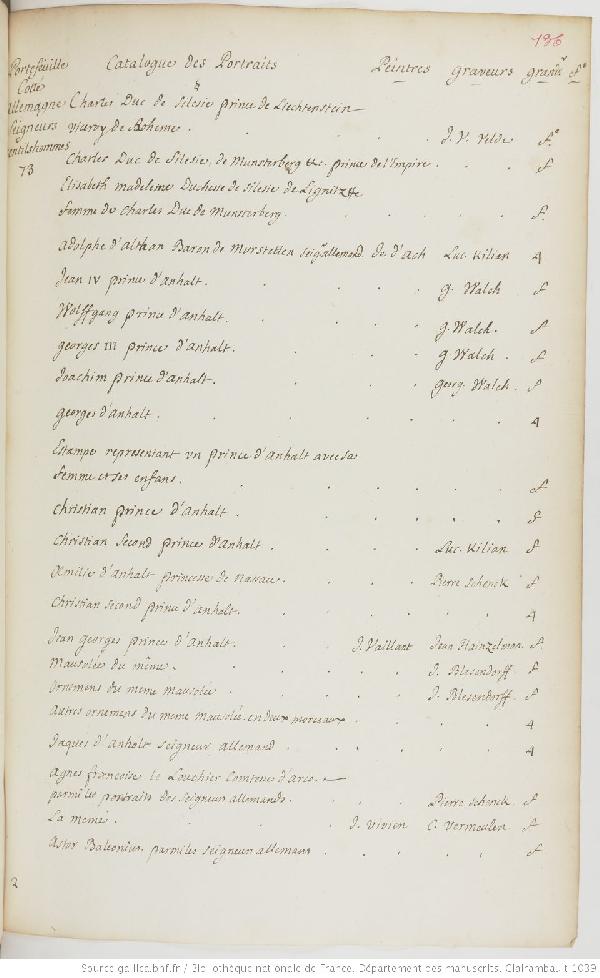 186
Portefeuille Catalogue des Portraits Peintres Graveurs grandr. fo
Cotte
allemagne Charles Duc de Silesie prince de Liechtenstein
Seigneurs viceroy de Boheme . . . J. V. Velde fo
gentilshommes
73 Charles Duc de Silesie, de Munsterberg &c. prince de l'Empire . . . f
Elisabeth madeleine Duchesse de Silesie de Lignitz &c
femme de Charles Duc de Munsterberg . . . f.
Adolphe d'althan Baron de Murstetten seigr. allemand. de. d'Ach Luc. Kilian 4
Jean IV prince d'anhalt . . . G. Walch f
Wolffgang prince d'anhalt . . . G. Walch. f
georges III prince d'anhalt . . . G Walch . f
Joachim prince d'anhalt . . . Georg. Walch . f
georges d'anhalt . . . 4
Estampe representant un prince d'anhalt avec sa
femme et ses enfans . . . f
Christian prince d'anhalt . . . f
Christian second prince d'anhalt . . . Luc. Kilian f
Amilie d'anhalt princesse de Nassau . . . Pierre Schenck f
Christian second prince d'anhalt . . . 4
Jean georges prince d'anhalt . . J. Vaillant Jean Hainzelman. f.
Mausolée du même . . . J. Blesendorff. f
ornemens du meme mausolée . . . J. Blesendorff. f
Autres ornemens du meme mausolée en deux morceaux . . . 4
Jaques d'anhalt seigneur allemand . . . 4
Agnes francoise le Louchier Comtesse d'arco.
parmi les portraits des seigneurs allemands . . . Pierre Schenck f
La meme . . . J. Vivien C. Vermeulen f
Astor Baleonius, parmi les seigneur allemans . . . f
2
Source gallica.bnf.fr / Bibliothèque nationale de France. Département des manuscrits. Clairambault 1039